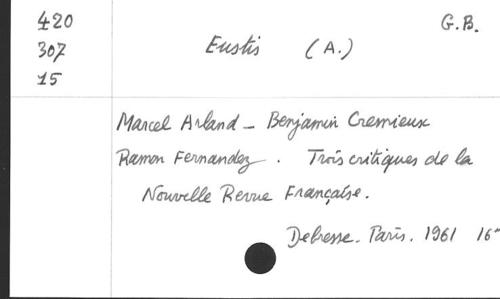 420
G.B.
307
Eustis (A.)
15
Marcel Arland - Benjamin Cremieux
Ramon Fernandez. Trois critiques de la
Nouvelle Revue Française.
Debresse. Paris. 1961 16°